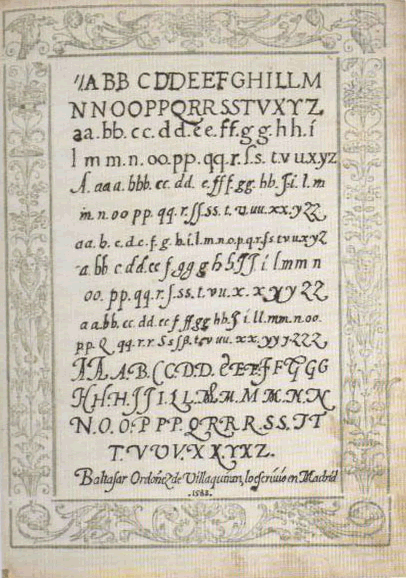 A BB C DDEEFGHILLM
NNOOPPQRRSSTVXYZ
aa.bb.cc.dd.ee.ff.gg.hh.i
l m m.n.oo.pp.qq.r.ſ.s.t.v.u.x.yz
A.aa a.bbb.cc.dd.e.fff.gg.hb.Ji.l.m
m.n.oo pp.qq.r.ſſ.ss.t.v.uu.xx.yzz
aa.b.c.d.e.f.g.h.i.l.m.n.o.p.q.r.ſs t v u x y z
a.bb c dd.ee f gg g h h JJ i l m m n
oo.pp.qq.r.ſ.ss.t.vu.x.x y y zz
a a bb.cc.dd.ee f ff gg hh J i.ll.mm.n.oo.
pp.Q qq.r.r S s ſß.t v uu.xx.yy z zzz
AA.A.B.C C.D D.EEEFF G GG
H.H.H J J I.L L.M.M M.M.N.N
N.O.O.P P.P.Q R R R.S.S.TT
T.V V V.X X.Y X Z.
Baltasar Ordóñez de Villaquiran, lo eſcriuio en Madrid
.1588.